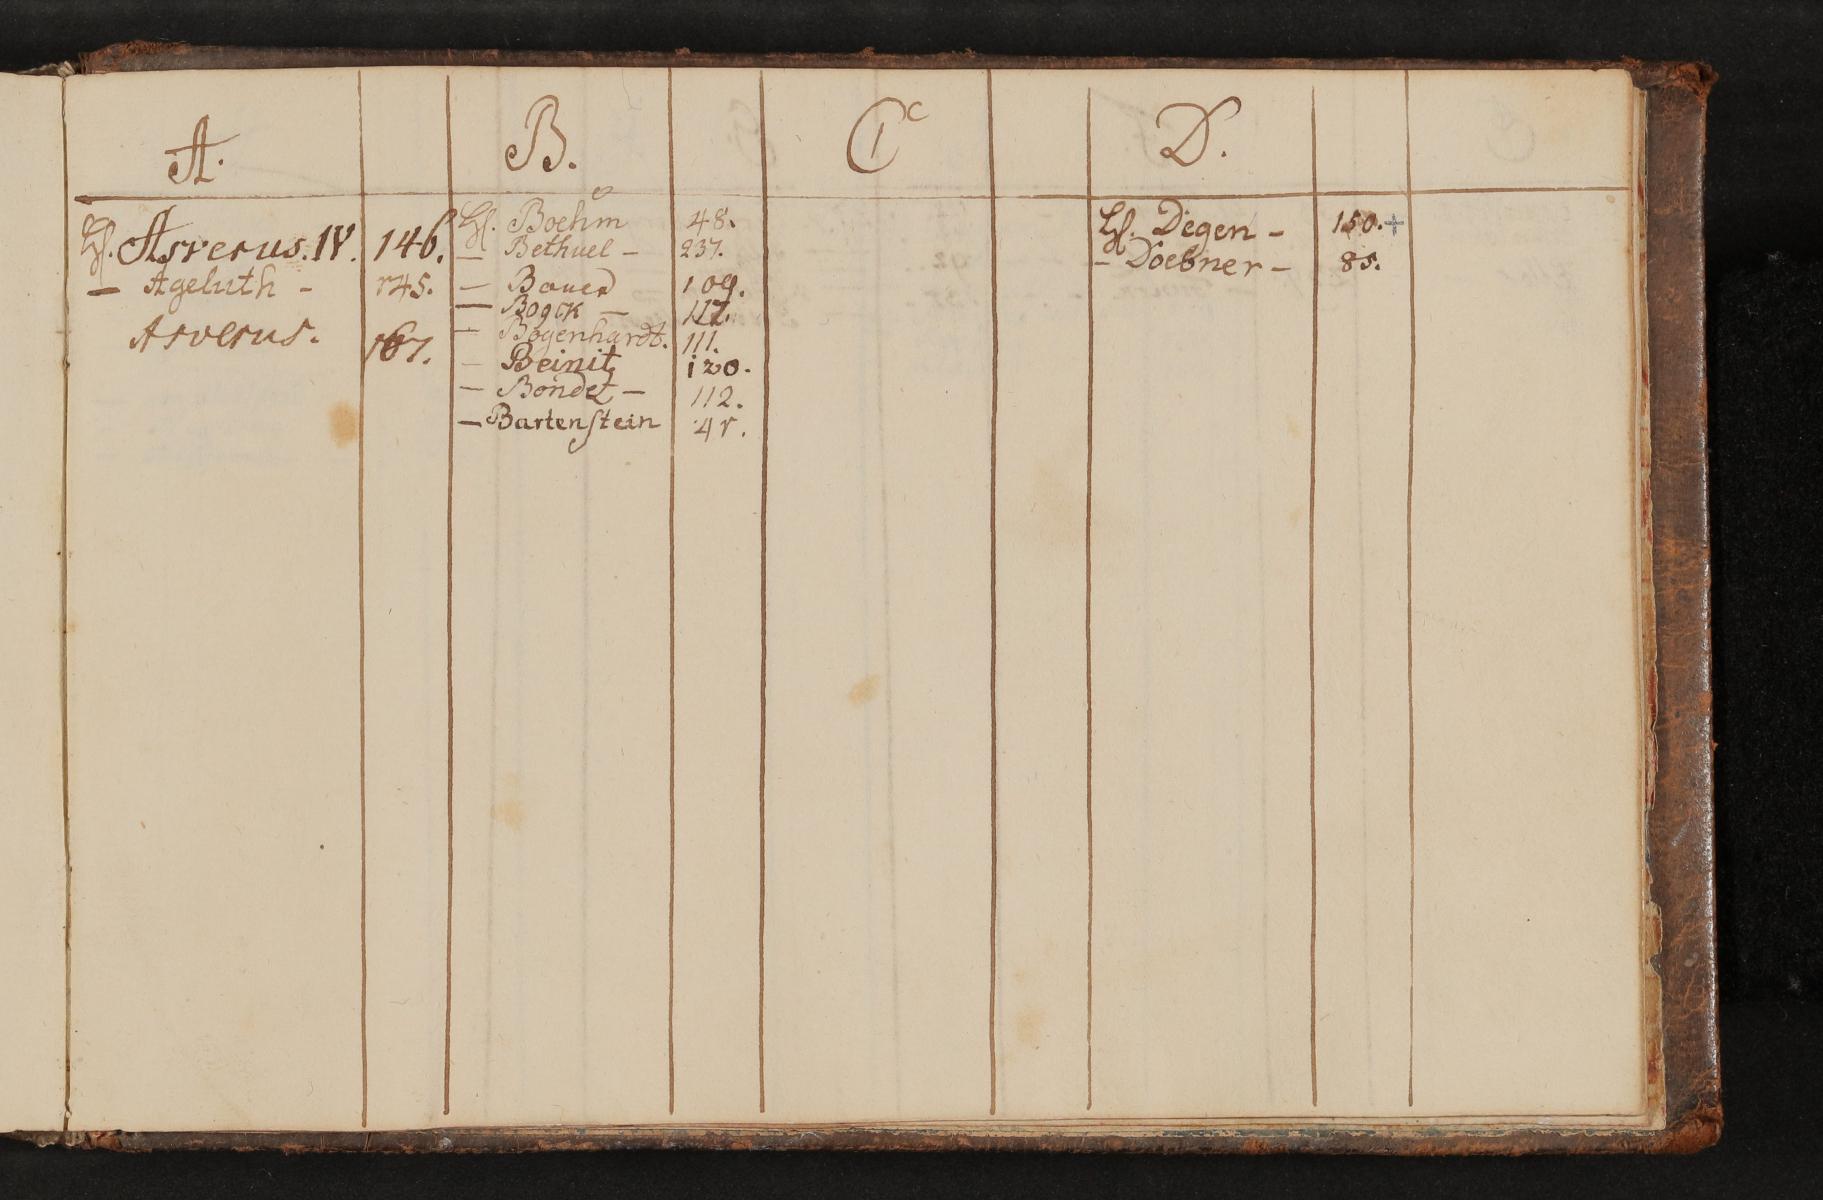 A.
Hl. Asverus. IV. 146.
— Ageluth — 145.
Asverus. 167.
B.
Hl. Boehm 48.
— Bethuel — 237.
— Bauer 109.
— Bogck — 117.
— Bogenhardt. 111.
— Beinitz 120.
— Bondet — 112.
— Bartenstein 45.
C
D.
Hl. Degen — 150. +
— Doebner — 85.